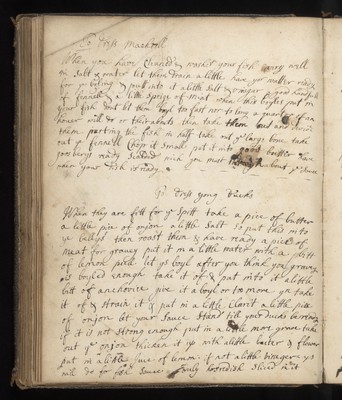 To dress Mackrell
When you have cleaned & washet your fish very well
in salt & water let them drain a little have your watter ready
for ye boyling & put into it a little salt & vinegar a good handfull
of fennell & a little sprigs of mint when this boyles put in
your fish but let them boyl too fast nor to long a quarter of an
houer will do or thereabouts then take them out and
them parting the fish in half take out ye large bone take
out ye fennell chop it small put it into good butter have
goosberys ready scalded
your fish is ready
To dress yong Ducks
When they are fitt for ye spitt take a pice of butter
a little pice of onjon a little salt so put this into
ye bellys then roast them & have ready a pice of
meat for gravey put it in a little water with a
of lemon pile let ys boyl after you think your gravey
is boyled enough take it of & put into it a little
bitt of anchovice give it a boyl or too more yn take
it of & strain it & put in a little Clarit a little pice
of onjon let your sauce stand till your ducks be
if it is not strong enough put in a little more gravey take
out ye onjon thicken it up with a little butter & flower
put in a little juce of lemon if not a little vinegar ys
will do for sauce sliced